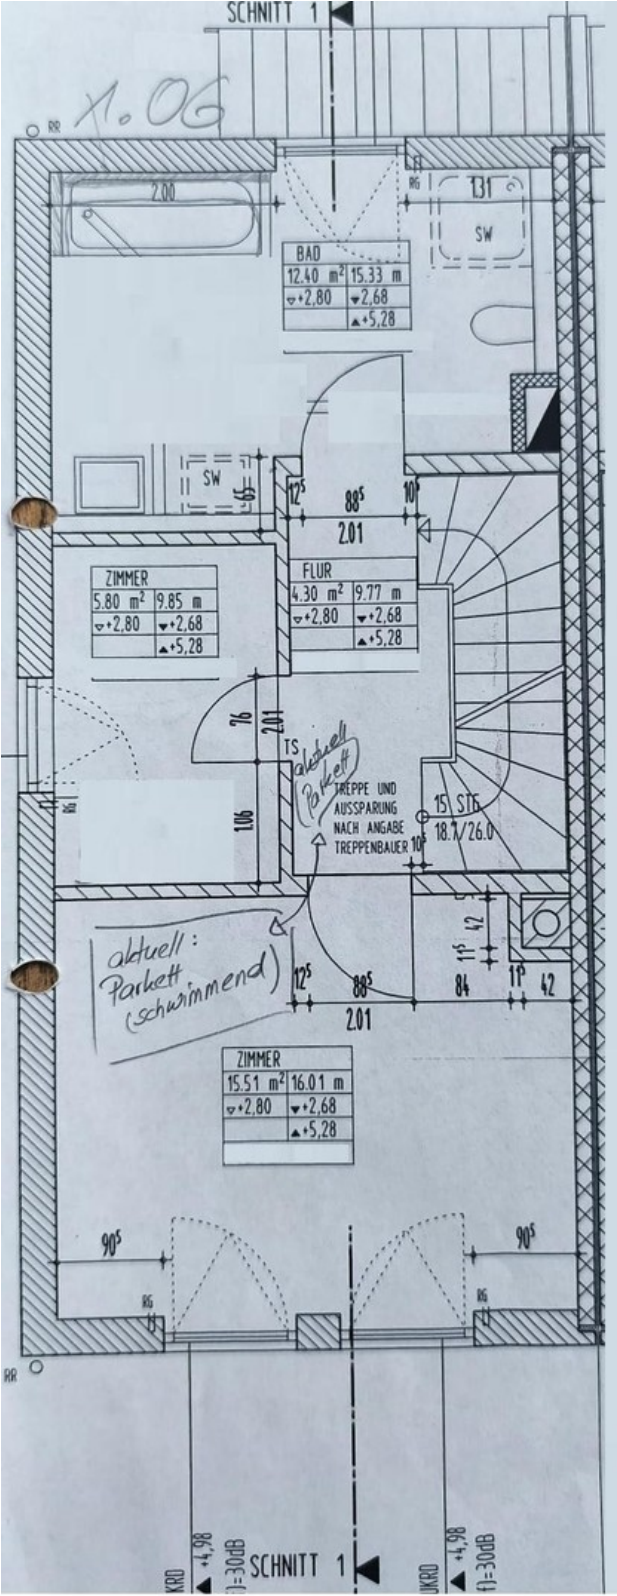 SCHNITT 1
1. OG
RR
2.00
RG
131
SW
BAD
12.40 m² 15.33 m
▽+2,80 ▼+2,68
▲+5,28
SW
65
12⁵ 88⁵ 10⁵
2.01
ZIMMER
5.80 m² 9.85 m
▽+2,80 ▼+2,68
▲+5,28
FLUR
4.30 m² 9.77 m
▽+2,80 ▼+2,68
▲+5,28
76
2.01
TS
aktuell
Parkett
RG
1.06
TREPPE UND
AUSSPARUNG
NACH ANGABE
TREPPENBAUER
10⁵
15 STG
18.7/26.0
aktuell:
Parkett
(schwimmend)
42
11⁵
12⁵ 88⁵ 84 11⁵ 42
2.01
ZIMMER
15.51 m² 16.01 m
▽+2,80 ▼+2,68
▲+5,28
90⁵
90⁵
RG
RG
RR
▲ +4,98
)=30dB
SCHNITT 1
UKRD
▲ +4,98
)=30dB